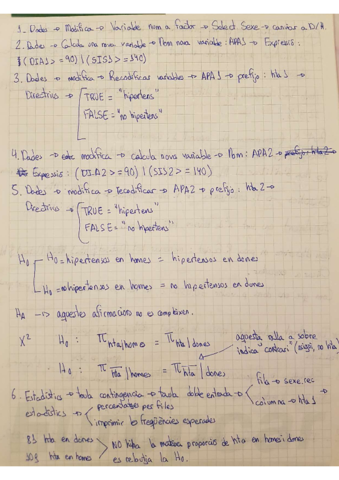 1. Dades → Modifica → Variable num a factor → Select Sexe → canviar a D/H.
2. Dades → Calcula una nova variable → Nom nova variable: APA1 → Expressió:
(DIA1>=90) | (SIS1>=140)
3. Dades → modifica → Recodificar variables → APA1 → prefijo: hta1 →
Directrius → TRUE = "hipertens"
FALSE = "no hipertens"
4. Dades → modifica → calcula nova variable → Nom: APA2 →
Expressió: (DIA2>=90) | (SIS2>=140)
5. Dades → modifica → recodificar → APA2 → prefijo: hta2 →
Directrius → TRUE = "hipertens"
FALSE = "no hipertens"
H0 H0 = hipertensos en homes = hipertensos en dones
H0 = no hipertensos en homes = no hipertensos en dones
HA → aquestes afirmacions no es compleixen.
X² H0: π hta|home = π hta|dones
aquesta ralla a sobre
indica "contrari" (o sigui, no hta)
H0: π hta|homes = π hta|dones
6. Estadística → taula contingència → taula doble entrada → fila → sexe.rec
columna → hta1
estadístics → percentatges per files
imprimir les freqüències esperades
hta en dones
hta en homes
NO hi ha la mateixa proporció de hta en homes i dones
es rebutja la H0.